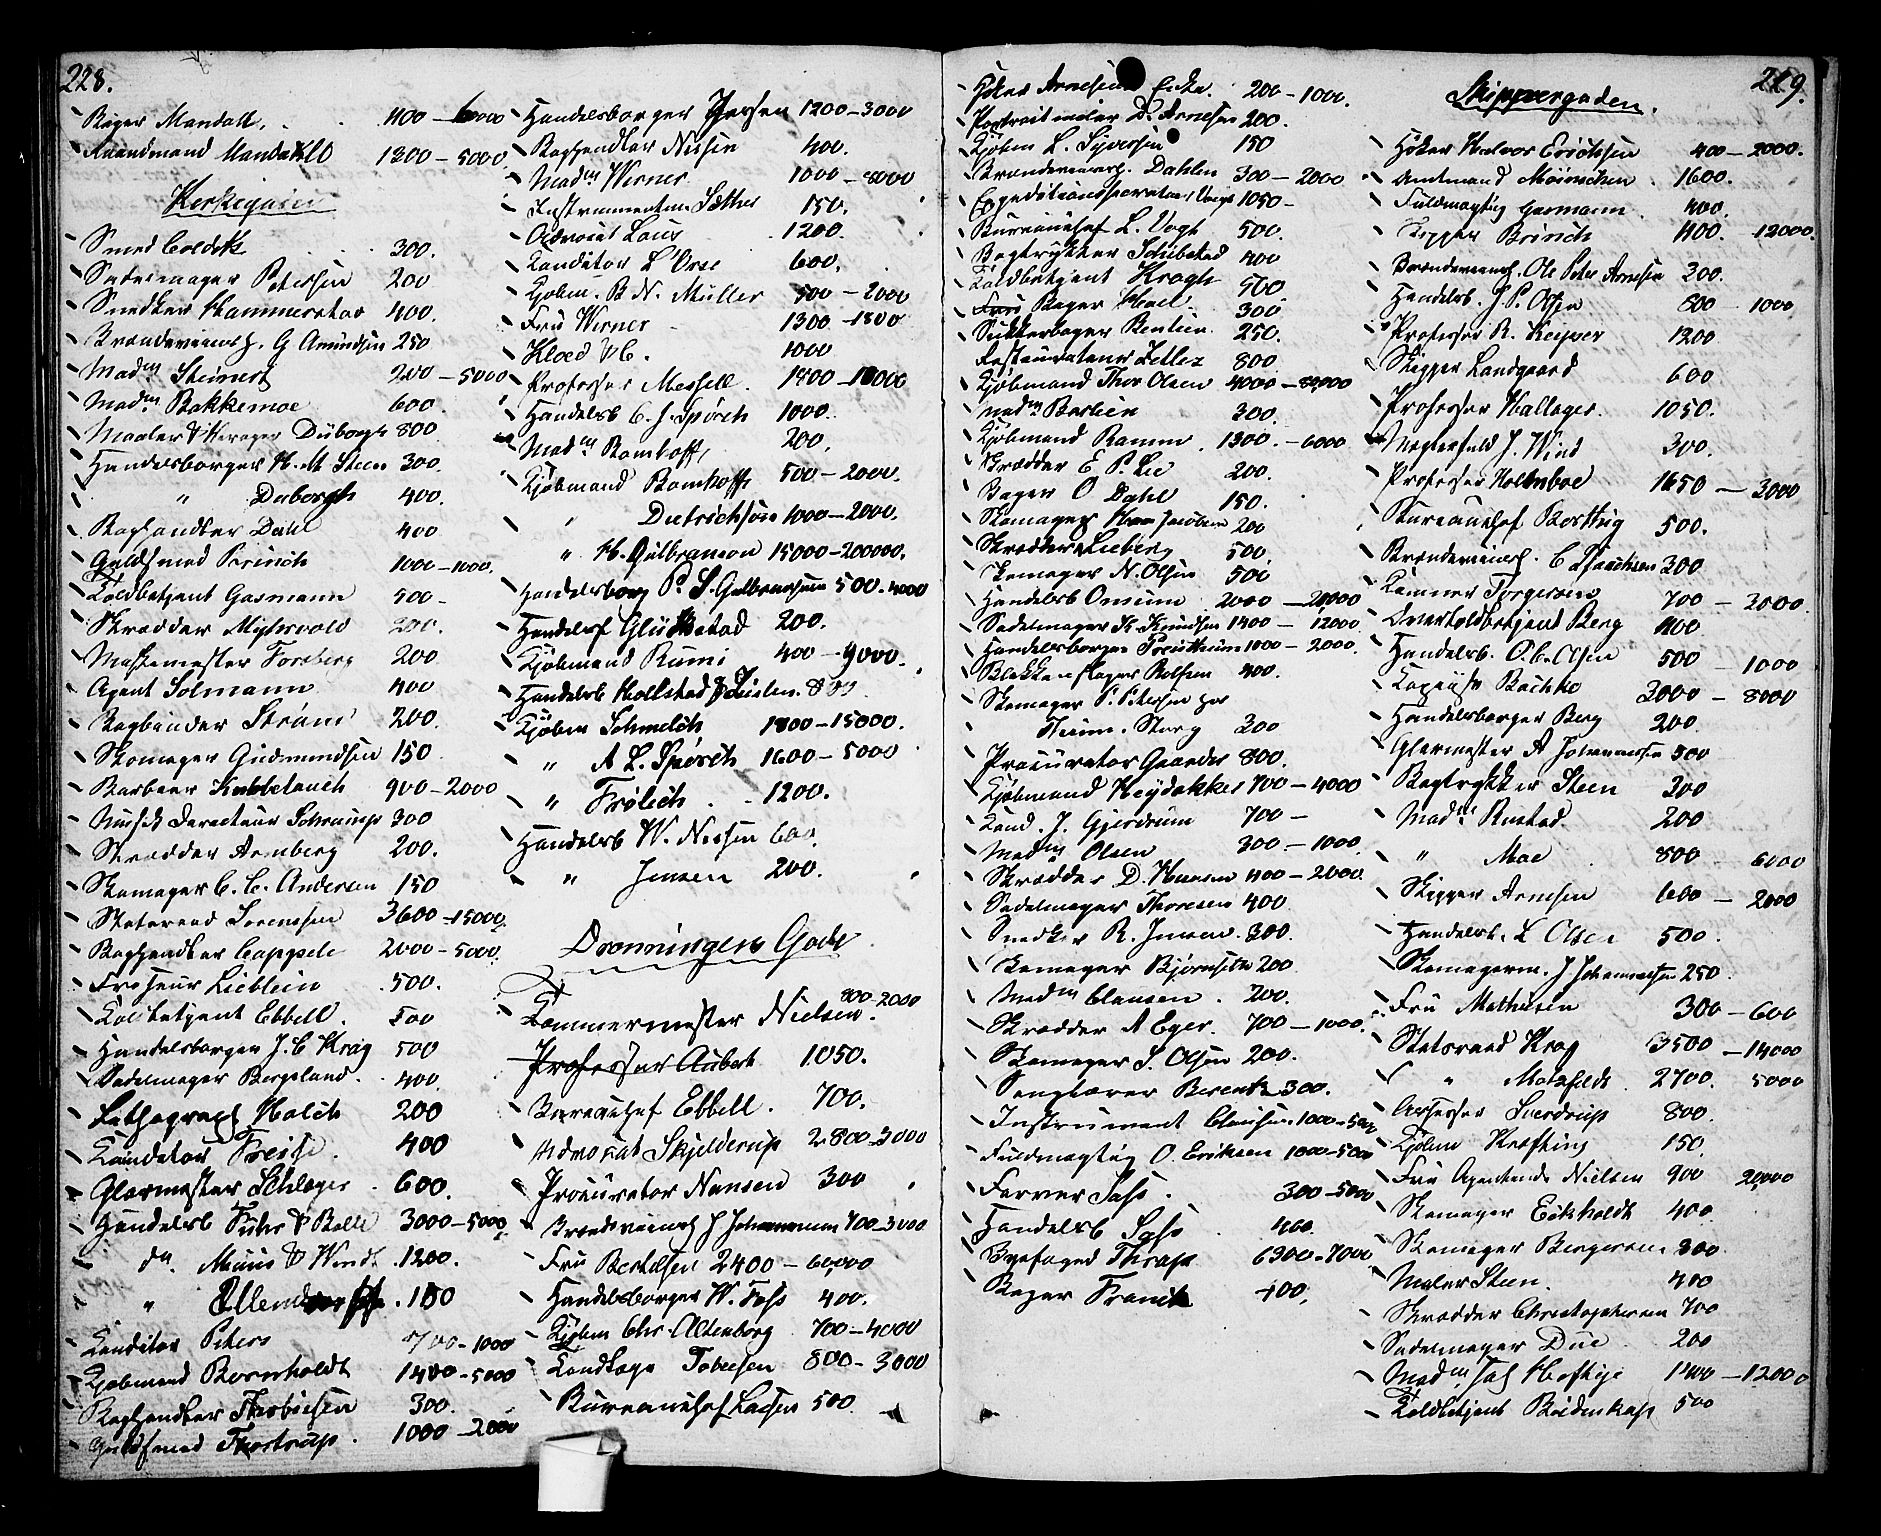 228.
Bager Mandall. 400 — 6000
Brandmand Mandahl 1200 — 5000
Kirkegaden
Smed Coldek 300.
Sadelmager Petersen 200
Snedker Hammerstad 400.
Brændeviinsh. G Amundsen 250
Madm Steinert 200 — 5000
Madm Bakkemoe 600.
Maaler & Duborgh 800
Handelsborger H. M Steen 300.
" Duborgh 400.
Boghandler Dahl 400
Guldsmed Princh 1000 — 1000.
Toldbetjent Gasmann 500 —
Skrædder Myhrvold 200.
Forsberg 200
Agent Solmann 400
Bogbinder Strøm 200.
Skomager Gudmundsen 150
Barbeer Kabbelauch 900 — 2000
Musik Directeur Schrumpf 300
Skrædder Armberg 200.
Skomager C. C. Andersen 150
Statsraad Sørenssen 3600 — 15000
Boghandler Cappelen 2000 — 5000.
Friseur Lieblein 500.
Toldbetjent Ebbell. 500
Handelsborger J. C Krag 500
Sadelmager Bergeland 400.
Lithograph Holch 200
Conditor Freise. 400
Glarmester Schlager 600.
Handelsb Fuhr & Bolle 3000 — 5000
do. Muus & Wind 1200.
" 100
Conditor Peters 700 — 1000
Kjøbmand Bornholdt 1400 — 5000
Boghandler Thorbiesen 300.
Guldsmed Thostrup. 1000 — 2000
Handelsborger Iversen 1200 — 3000
Boghandler Nissen 400.
Madm Werner 1000 — 8000
Instrumentm. Sæther 150.
Advocat Lous 1200.
Conditor L'Orsa 600.
Kjøbm. B N. Müller 500 — 2000
Fru Werner 1300 — 1800
Kloed & C. 1000
Professor Messell. 1800 — 10000
Handelsb C. J. Spørch 1000.
Madm Bomhoff, 200.
Kjøbmand Bomhoff 500 — 2000.
" Dietrichson 1000 — 2000.
" H. Gulbranson 15000 — 200000.
Handelsborg P. S. Gulbranssen 500 — 4000
Handelsf Glückstad 200.
Kjøbmand Rumi 400 — 9000.
Handelsb Hollstad & 800
Kjøbm Schmelck 1800 — 15000.
" A L. Spørch 1600 — 5000
" Frølich. 1200.
Handelsb W. Nissen 600
" Jensen 200.
Dronningens Gade
Kammermester Nielsen. 800 — 2000
Professor Aubert 1050.
Bureauchef Ebbell. 700.
Advokat Skjelderup 2800 — 3000
Procurator Nansen 300
Brændeviinsh J Johannesen 700 — 3000
Fru Bertelsen 2400 — 60,000
Handelsborger W. Foss 400.
Kjøbm Chr. Altenborg 700 — 4000
Landkaps Tobiesen 800 — 3000
Bureauchef Lassen 500
219.
Høker Arnesens Enke. 200 — 1000.
Portraitmaler D. Arnesen 200.
Kjøbm L. Syversen 150
Brændeviinsh. Dahlen 300 — 2000
Expeditionssecretair Vogt 1050 —
Bureauchef L. Vogt 500.
Bogtrykker Schibsted 400
Toldbetjent Kragh 500
Fru Bager Hoel 300
Sukkerbager Rentien 250.
Restaurateur Zetlez 800.
Kjøbmand Thor Olsen 4000 — 80,000
Madm Barlien 300.
Kjøbmand Ramm. 1300. — 6000
Skrædder E. P. Lie 200.
Bager O Dahl 150.
Skomager Hans Jacobsen 200
Skrædder Lieberg 500
Skomager N. Olsen 500
Handelsb Onsum 2000 — 20,000
Sadelmager K. Knudsen 1400 — 12000
Handelsborger Preutheun 1000 — 2000
Blikkenslager Rolfsen 400.
Skomager P. Petersen
Storg 200
Procurator Gaarder 800.
Kjøbmand Heydahker 700 — 4000
Cand. J. Gjerdrum 700 —
Madm Olsen 300 — 1000
Skrædder D. Hansen 400 — 2000.
Sadelmager Thoresen 400
Snedker R. Jensen 300.
Skomager Bjørnseth 200
Madm Clausen. 200.
Skrædder A Eger. 700 — 1000.
Skomager S. Olsen 200.
Sanglærer Berentz 300.
Instrument Clausen 1000 — 500
Fuldmægtig O. Eriksen 1000 — 5000
Farver Foss. 300 — 5000
Handelsb Foss 400.
Byefoged Thrap 6300 — 7000
Bager Franck 400.
Skippergaden.
Høker Halvor Erichsen 400 — 2000.
Amtmand Meinichen 1600.
Fuldmægtig Gasmann. 400.
Skipper Brinch 400. — 12000.
Brændeviinsh. Ole Peter Arnesen 200.
Handelsb. J. P. Olsen 600 — 1000
Professor R. Keyser 1200
Skipper Landgaard 600
Professor Hallager. 1050.
J. Wind 300.
Professor Holmboe 1650 — 3000
Bureauchef Bosttig 500.
Brændeviinsh. C Isaachsen 300
Kæmner Torgersen 700 — 3000
Overtoldbetjent Berg 400
Handelsb. O. C. Olsen 500 — 1000
Bachke 3000 — 8000
Handelsborger Berg 200.
Glarmester A Johannessen 500
Bogtrykker Steen 200
Madm Rustad. 200
" Moe 800 — 6000
Skipper Arnesen 600 — 2000
Handelsb. L Olsen 500.
Skomagerm. J Johannessen 250.
Fru Mathiesen 300 — 600
Statsraad Krog 3500 — 14000
" Motzfeldt 2700. 5000
Assessor Sverdrup 800.
Kjøbm Kræfting 150.
Fru Agentinde Nielsen 900 20,000
Skomager Eekholdt 400.
Skomager Bergersen 300.
Maler Steen. 400
Skrædder Christophersen 700
Sadelmager Due. 200
Madm Heftye 1400 — 12000
Toldbetjent Bødenskap 500